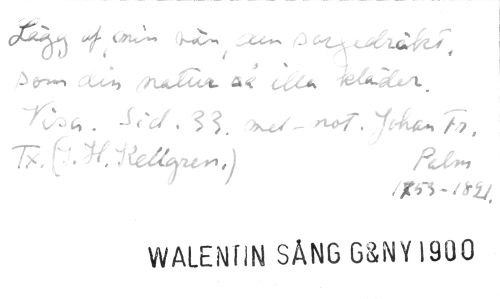 Lägg af, min vän, den sorgedräkt,
som din natur så illa kläder.
Visa. Sid. 33. met-not. Johan Fr.
Tx. (J. H. Kellgren.) Palm
1753-1821.
WALENTIN SÅNG G&NY 1900